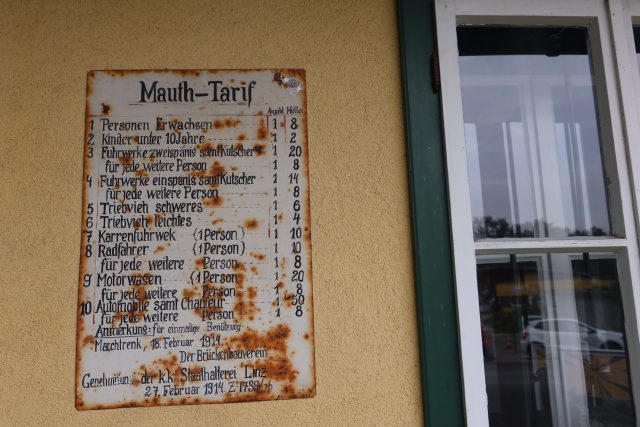 Mauth-Tarif
Anzahl Heller
1 Personen Erwachsen 1 8
2 Kinder unter 10 Jahre 1 2
3 Fuhrwerke zweispänig samt Kutscher 1 20
für jede weitere Person 1 8
4 Fuhrwerke einspänig samt Kutscher 1 14
für jede weitere Person 1 8
5 Triebvieh schweres 1 6
6 Triebvieh leichtes 1 4
7 Karrenfuhrwek (1 Person) 1 10
8 Radfahrer (1 Person) 1 10
für jede weitere Person 1 8
9 Motorwagen (1 Person 1 20
für jede weitere Person 1 8
10 Automobile samt Chaufeur 1 50
für jede weitere Person 1 8
Anmerkung: für einmalige Benützung
Marchtrenk, 18. Februar 1914
Der Brückenbauverein
Genehmigung der k.k. Statthalterei Linz
27. Februar 1914 Z